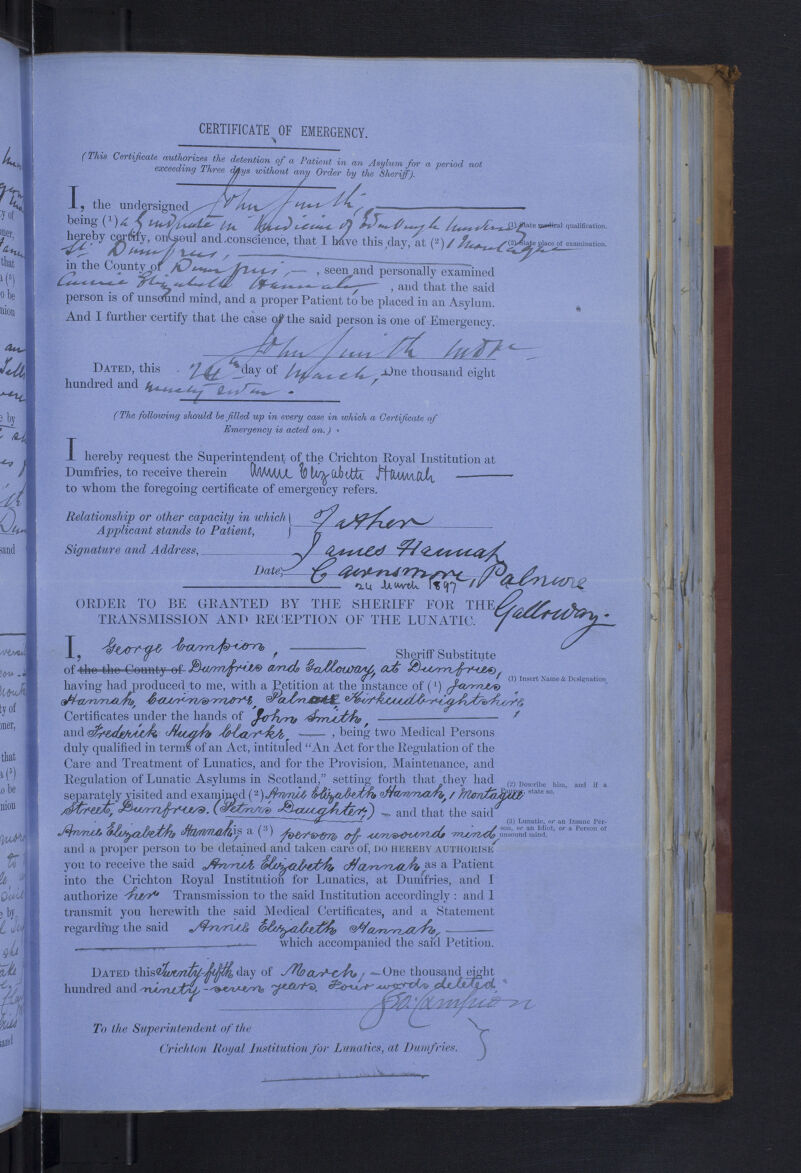 CERTIFICATE OF EMERGENCY.
(This Certificate authorizes the detention of a Patient in an Asylum for a period not
exceeding Three days without any Order by the Sheriff).
I, the undersigned John Smith,
being (1) a Graduate in Medicine of Edinburgh University
(1) State medical qualification.
hereby certify, on soul and conscience, that I have this day, at (2) 1 Montague
(2) State place of examination.
St. Dumfries,
in the County of Dumfries, — , seen and personally examined
Annie Elizabeth Hannah, , and that the said
person is of unsound mind, and a proper Patient to be placed in an Asylum.
And I further certify that the case of the said person is one of Emergency.
John Smith MD
DATED, this 24th day of March, One thousand eight
hundred and ninety seven.
(The following should be filled up in every case in which a Certificate of
Emergency is acted on.)
I hereby request the Superintendent of the Crichton Royal Institution at
Dumfries, to receive therein Annie Elizabeth Hannah
to whom the foregoing certificate of emergency refers.
Relationship or other capacity in which
Applicant stands to Patient, } Father
Signature and Address, James Hannah
Date, Cairnsmore, Palnure
24 March 1897
Galloway.
ORDER TO BE GRANTED BY THE SHERIFF FOR THE
TRANSMISSION AND RECEPTION OF THE LUNATIC.
I, George Campion, — Sheriff Substitute
of the the County of Dumfries and Galloway, at Dumfries,
having had produced to me, with a Petition at the instance of (1) James
(1) Insert Name & Designation
Hannah, Cairnsmore, Palnure, Kirkcudbrightshire,
Certificates under the hands of John Smith,
and Frederick Hugh Clarke, — , being two Medical Persons
duly qualified in terms of an Act, intituled "An Act for the Regulation of the
Care and Treatment of Lunatics, and for the Provision, Maintenance, and
Regulation of Lunatic Asylums in Scotland," setting forth that they had
separately visited and examined (2) Annie Elizabeth Hannah, 1 Montague
(2) Describe him, and if a
Pauper, state so.
Street, Dumfries. (Petnr's Daughter) — and that the said
Annie Elizabeth Hannah is a (3) person of unsound mind,
(3) Lunatic, or an Insane Per-
son, or an Idiot, or a Person of
unsound mind.
and a proper person to be detained and taken care of, DO HEREBY AUTHORISE
you to receive the said Annie Elizabeth Hannah, as a Patient
into the Crichton Royal Institution for Lunatics, at Dumfries, and I
authorize her Transmission to the said Institution accordingly : and I
transmit you herewith the said Medical Certificates, and a Statement
regarding the said Annie Elizabeth Hannah,
which accompanied the said Petition.
DATED this Twenty fifth day of March, — One thousand eight
hundred and ninety-seven years. Four words deleted.
Geo. Campion
To the Superintendent of the
Crichton Royal Institution for Lunatics, at Dumfries.